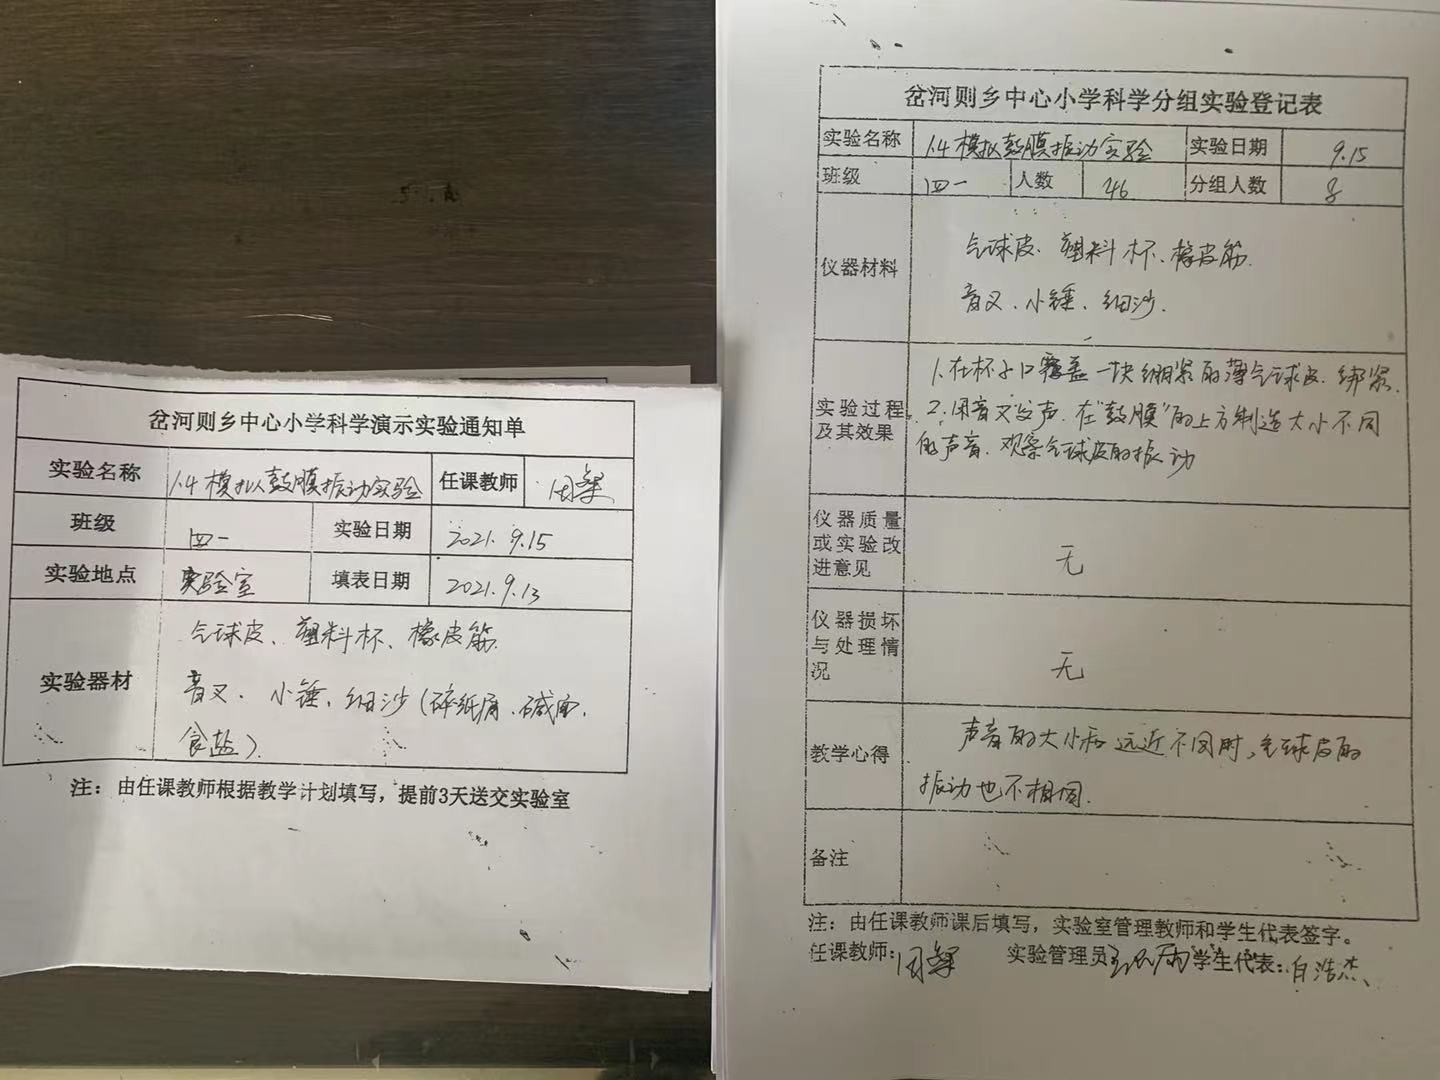 岔河则乡中心小学科学演示实验通知单
实验名称 1.4模拟鼓膜振动实验 任课教师
班级 四一 实验日期 2021.9.15
实验地点 实验室 填表日期 2021.9.13
实验器材
气球皮、塑料杯、橡皮筋
音叉、小锤、细沙(碎纸屑、碱面、
食盐)
注：由任课教师根据教学计划填写，提前3天送交实验室
岔河则乡中心小学科学分组实验登记表
实验名称 1.4模拟鼓膜振动实验 实验日期 9.15
班级 四一 人数 46 分组人数 8
仪器材料
气球皮、塑料杯、橡皮筋
音叉、小锤、细沙.
实验过程及其效果
1.在杯子口覆盖一块绷紧的薄气球皮.绑紧.
2.用音叉发声.在"鼓膜"的上方制造大小不同
的声音.观察气球皮的振动
仪器质量
或实验改
进意见
无
仪器损坏
与处理情
况
无
教学心得
声音的大小和远近不同时,气球皮的
振动也不相同.
备注
注：由任课教师课后填写，实验室管理教师和学生代表签字。
任课教师： 实验管理员 学生代表：白浩杰